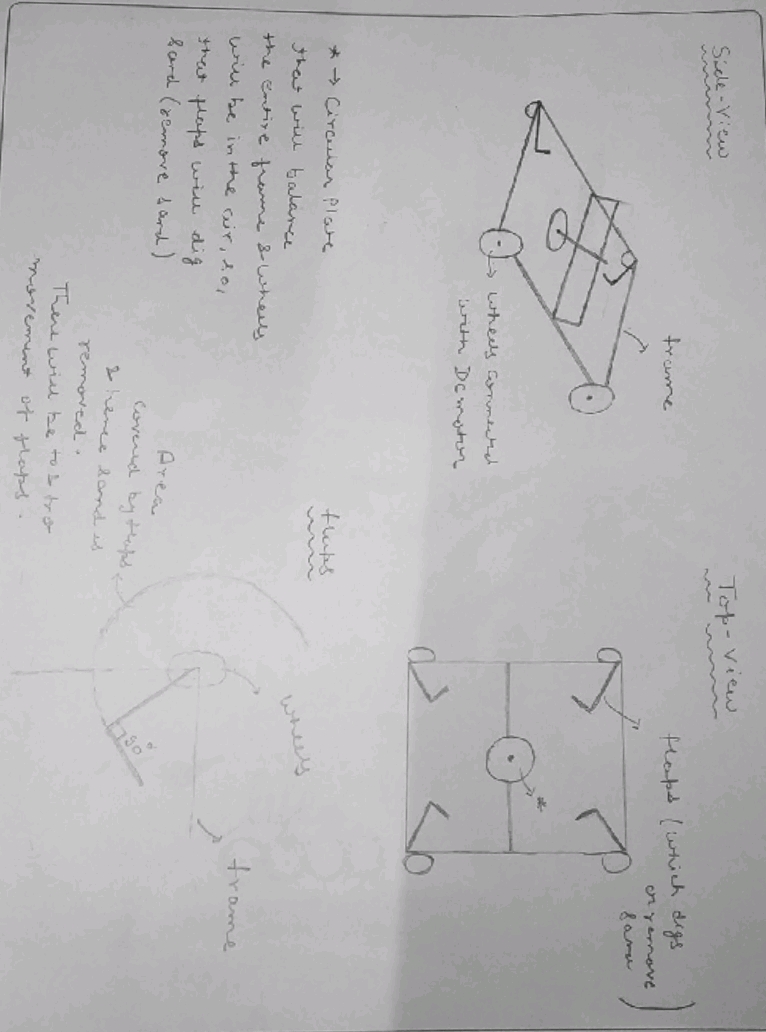 Side-View
frame
wheels connected
with DC motor
Top-View
flaps (which digs
or remove
sand)
*
* → Circular Plate
that will balance
the entire frame & wheels
will be in the air, so,
that flaps will dig
sand (remove sand)
flaps
wheels
frame
90°
Area
covered by flaps
& hence sand is
removed.
There will be to & fro
movement of flaps.